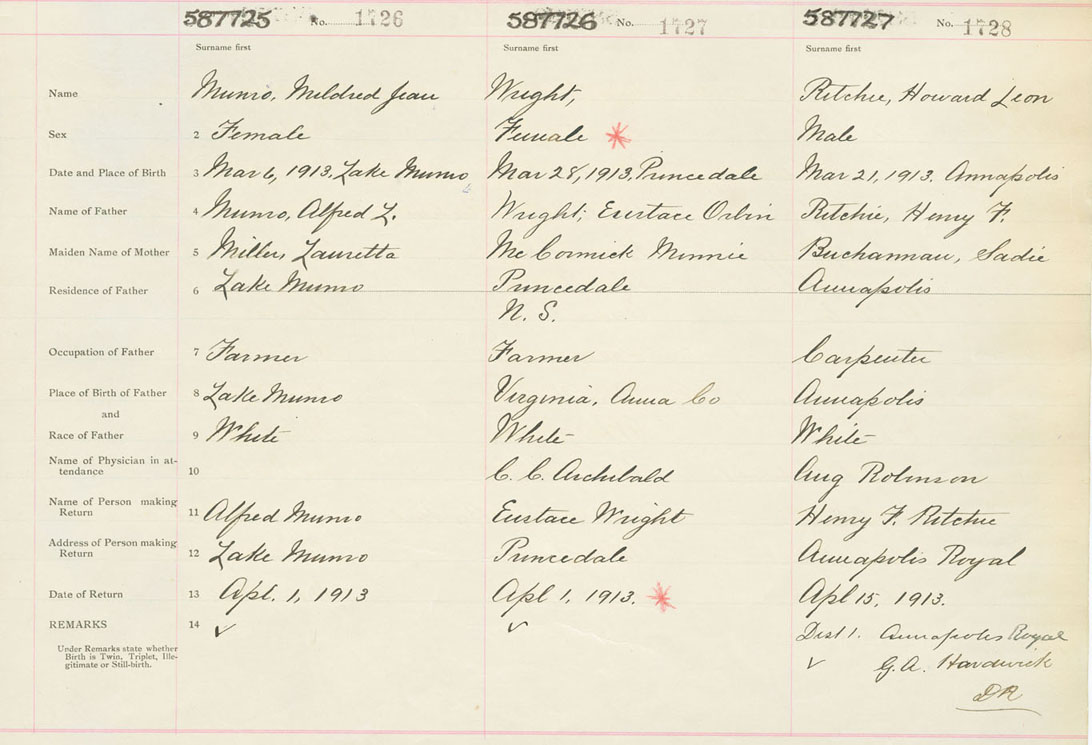 587725 No. 1726 587726 No. 1727 587727 No. 1728
Surname first Surname first Surname first
Name Munro, Mildred Jean Wright, Ritchie, Howard Leon
Sex 2 Female Female Male
Date and Place of Birth 3 Mar 6, 1913, Lake Munro Mar 28, 1913, Princedale Mar 21, 1913. Annapolis
Name of Father 4 Munro, Alfred L. Wright, Eustace Orbin Ritchie, Henry F.
Maiden Name of Mother 5 Miller, Lauretta McCormick Minnie Buchannan, Sadie
Residence of Father 6 Lake Munro Princedale Annapolis
N. S.
Occupation of Father 7 Farmer Farmer Carpenter
Place of Birth of Father 8 Lake Munro Virginia, Anna Co Annapolis
and
Race of Father 9 White White White
Name of Physician in at-
tendance 10 C. C. Archibald Aug Robinson
Name of Person making
Return 11 Alfred Munro Eustace Wright Henry F. Ritchie
Address of Person making
Return 12 Lake Munro Princedale Annapolis Royal
Date of Return 13 Apl. 1, 1913 Apl 1, 1913. Apl 15, 1913.
REMARKS 14 Dist 1. Annapolis Royal
Under Remarks state whether
Birth is Twin, Triplet, Ille-
gitimate or Still-birth. G. A. Hardwick
DR